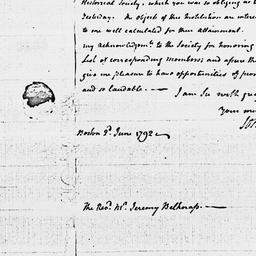 Historical Society, which you was so obliging as t
Yesterday. The objects of this Institution are intere
to me well calculated for their attainment.
my Acknowledgmts. to the Society for honoring
List of corresponding members; and assure th
give me pleasure to have opportunities of pro
and so laudable.—
I am Sir with gre
Your mo
Boston 2d. June 1792
The Revd. Mr. Jeremy Belknap.—